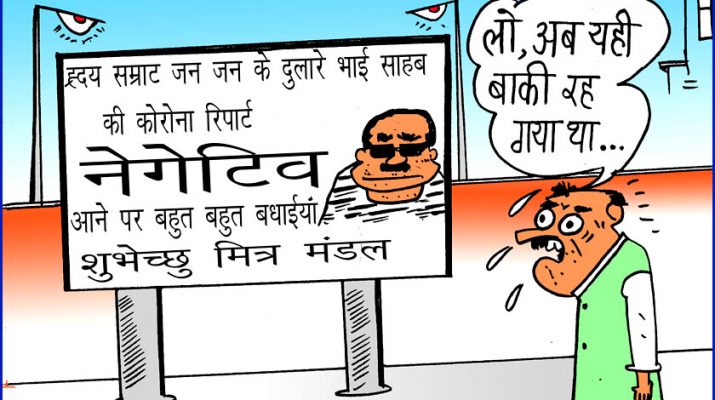 ह्रदय सम्राट जन जन के दुलारे भाई साहब
की कोरोना रिपार्ट
नेगेटिव
आने पर बहुत बहुत बधाईयां
शुभेच्छु मित्र मंडल
लो, अब यही
बाकी रह
गया था...